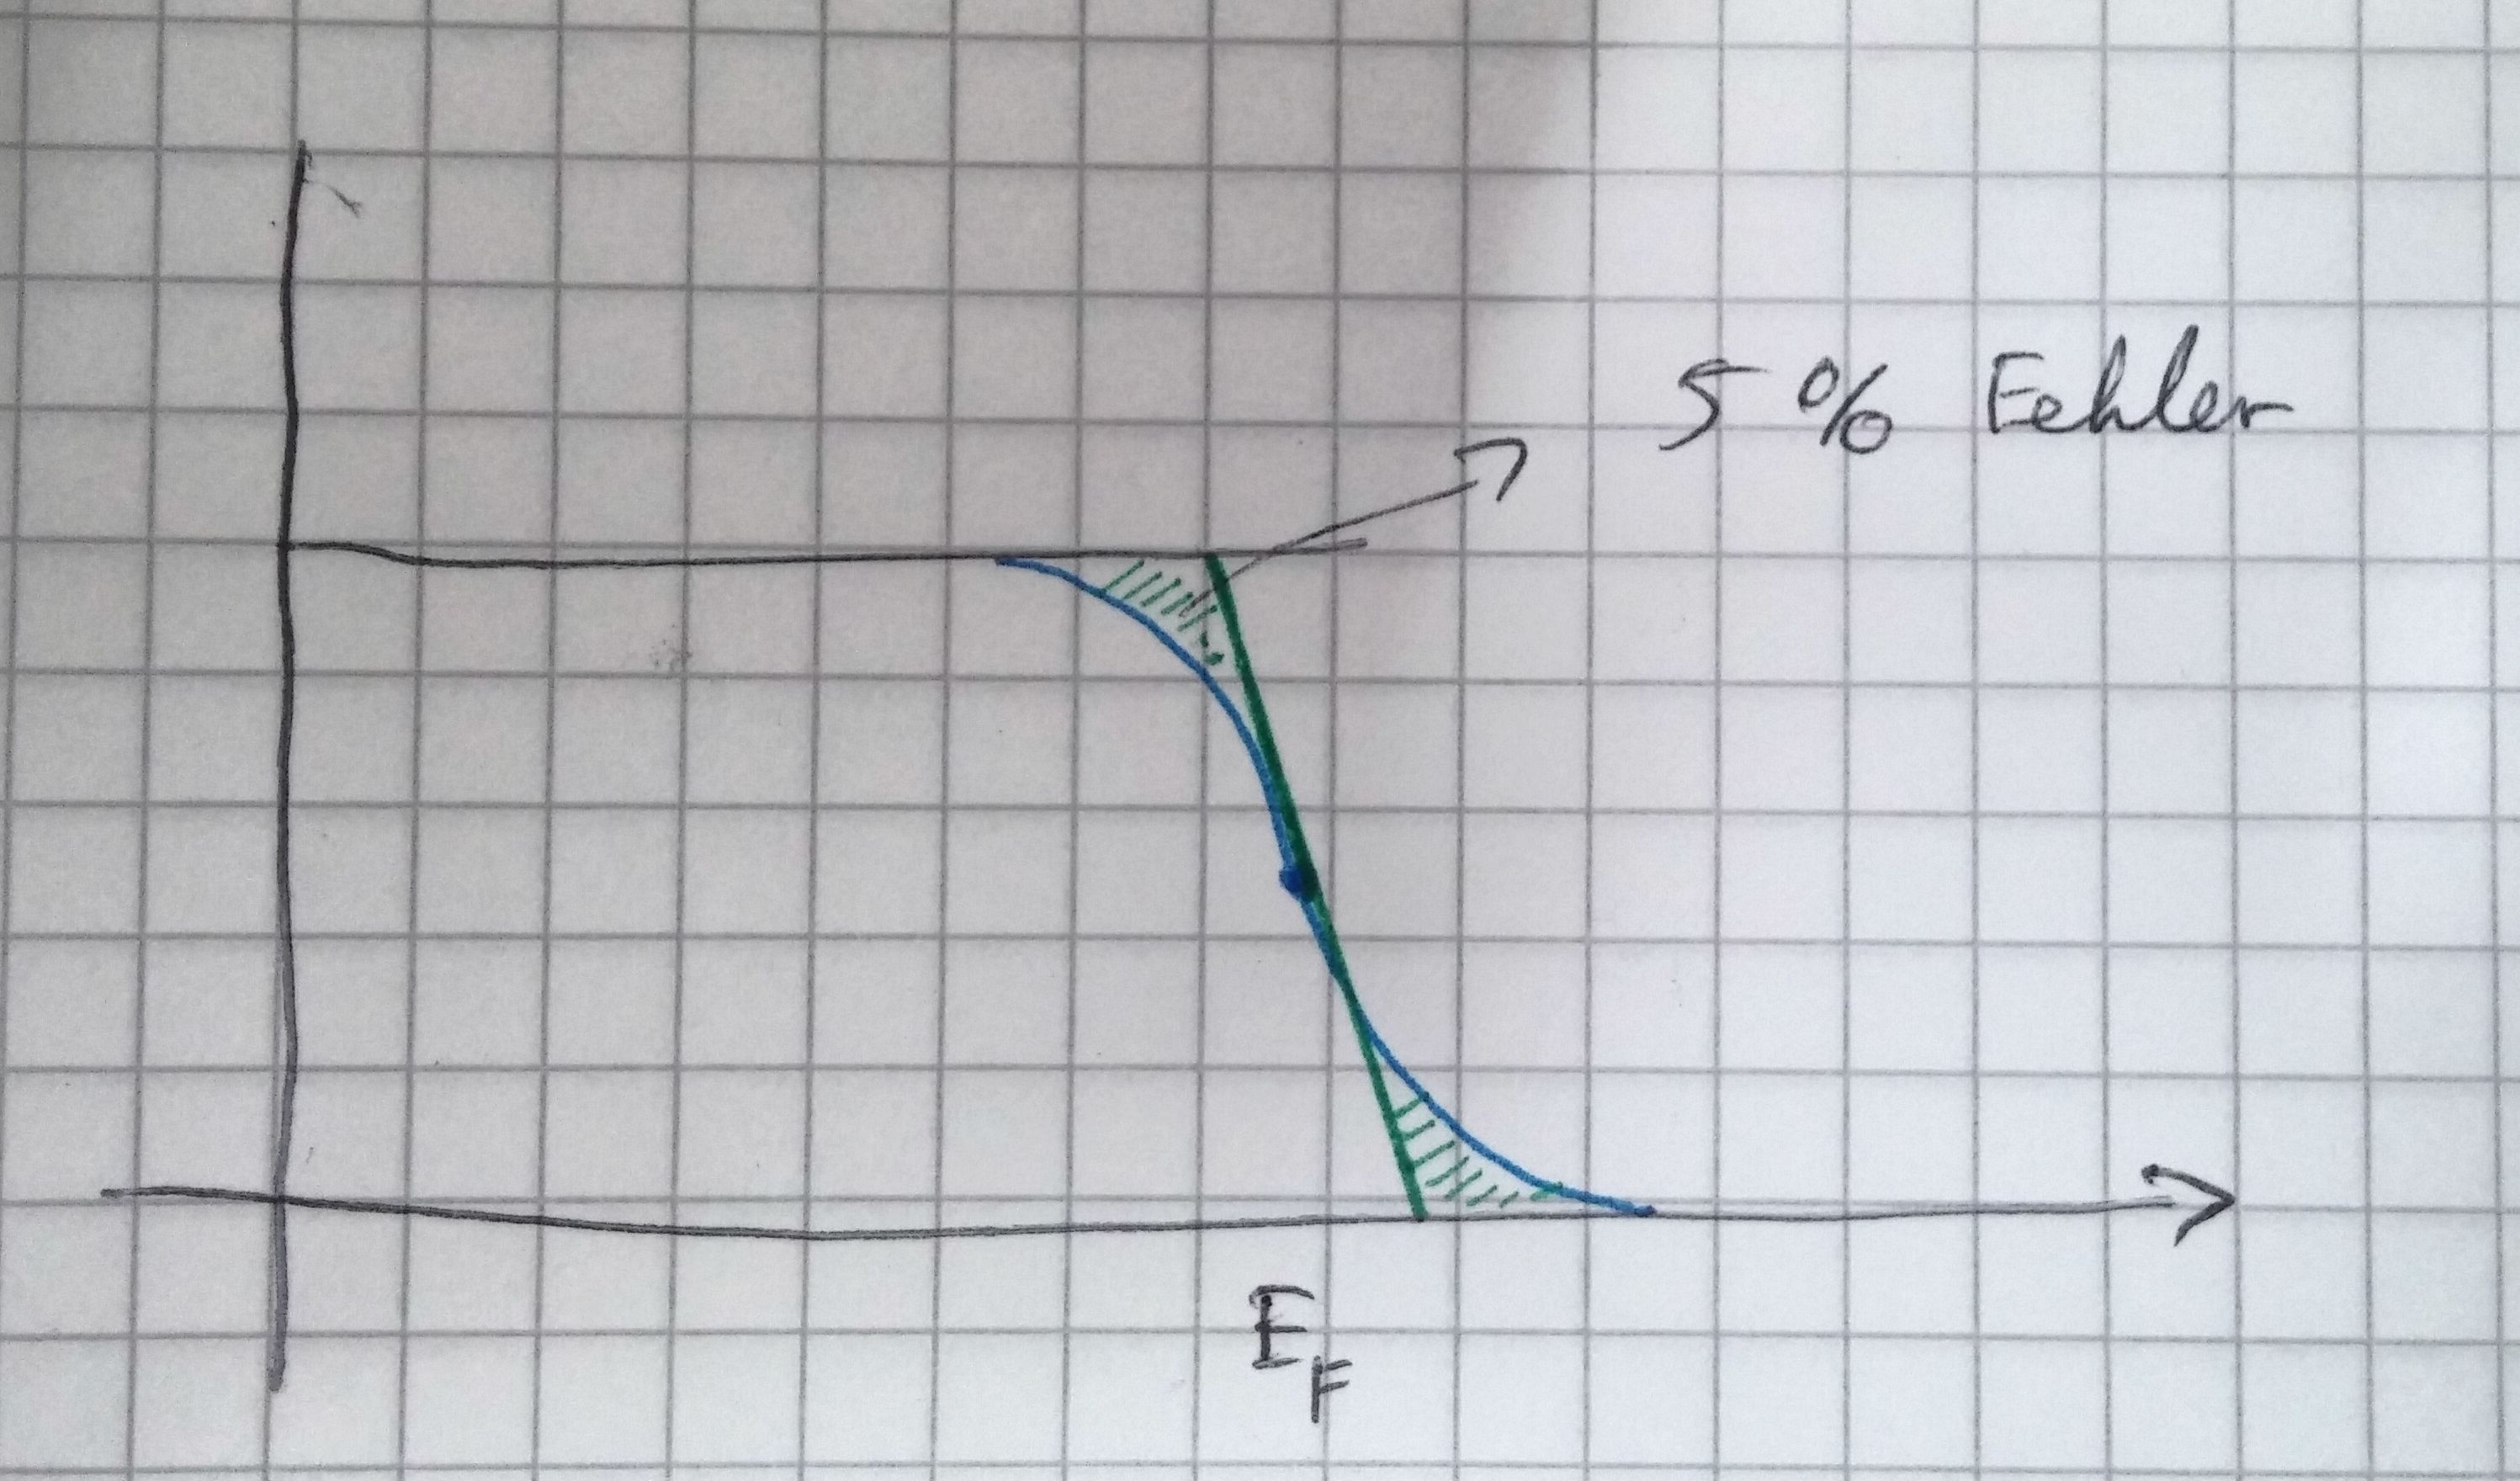 5 % Fehler
E_F